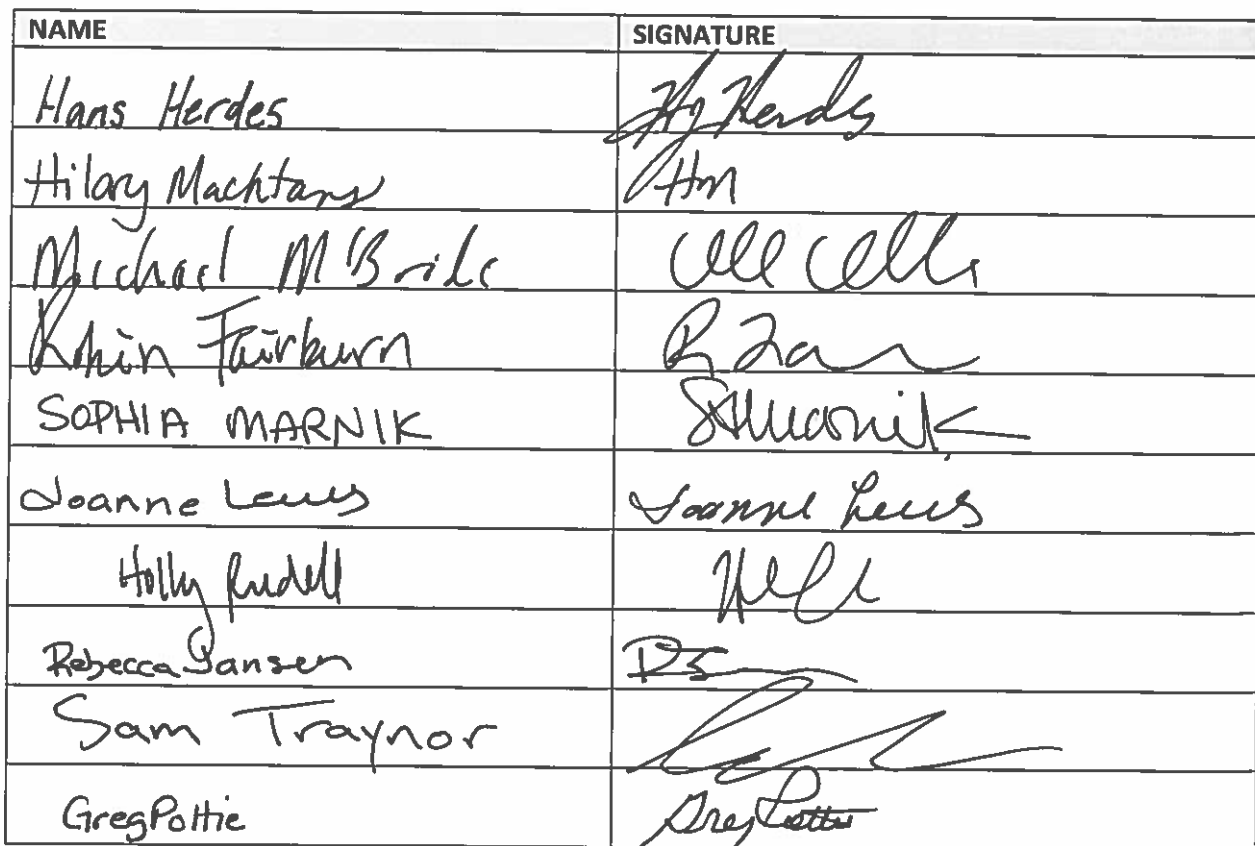 NAME SIGNATURE
Hans Herdes Hg Herdes
Hilary Machtans HM
Michael McBride
Robin Fairburn
SOPHIA MARNIK SAMarnik
Joanne Lewis Joanne Lewis
Holly Rudell
Rebecca Jansen
Sam Traynor
Greg Pottie Greg Pottie